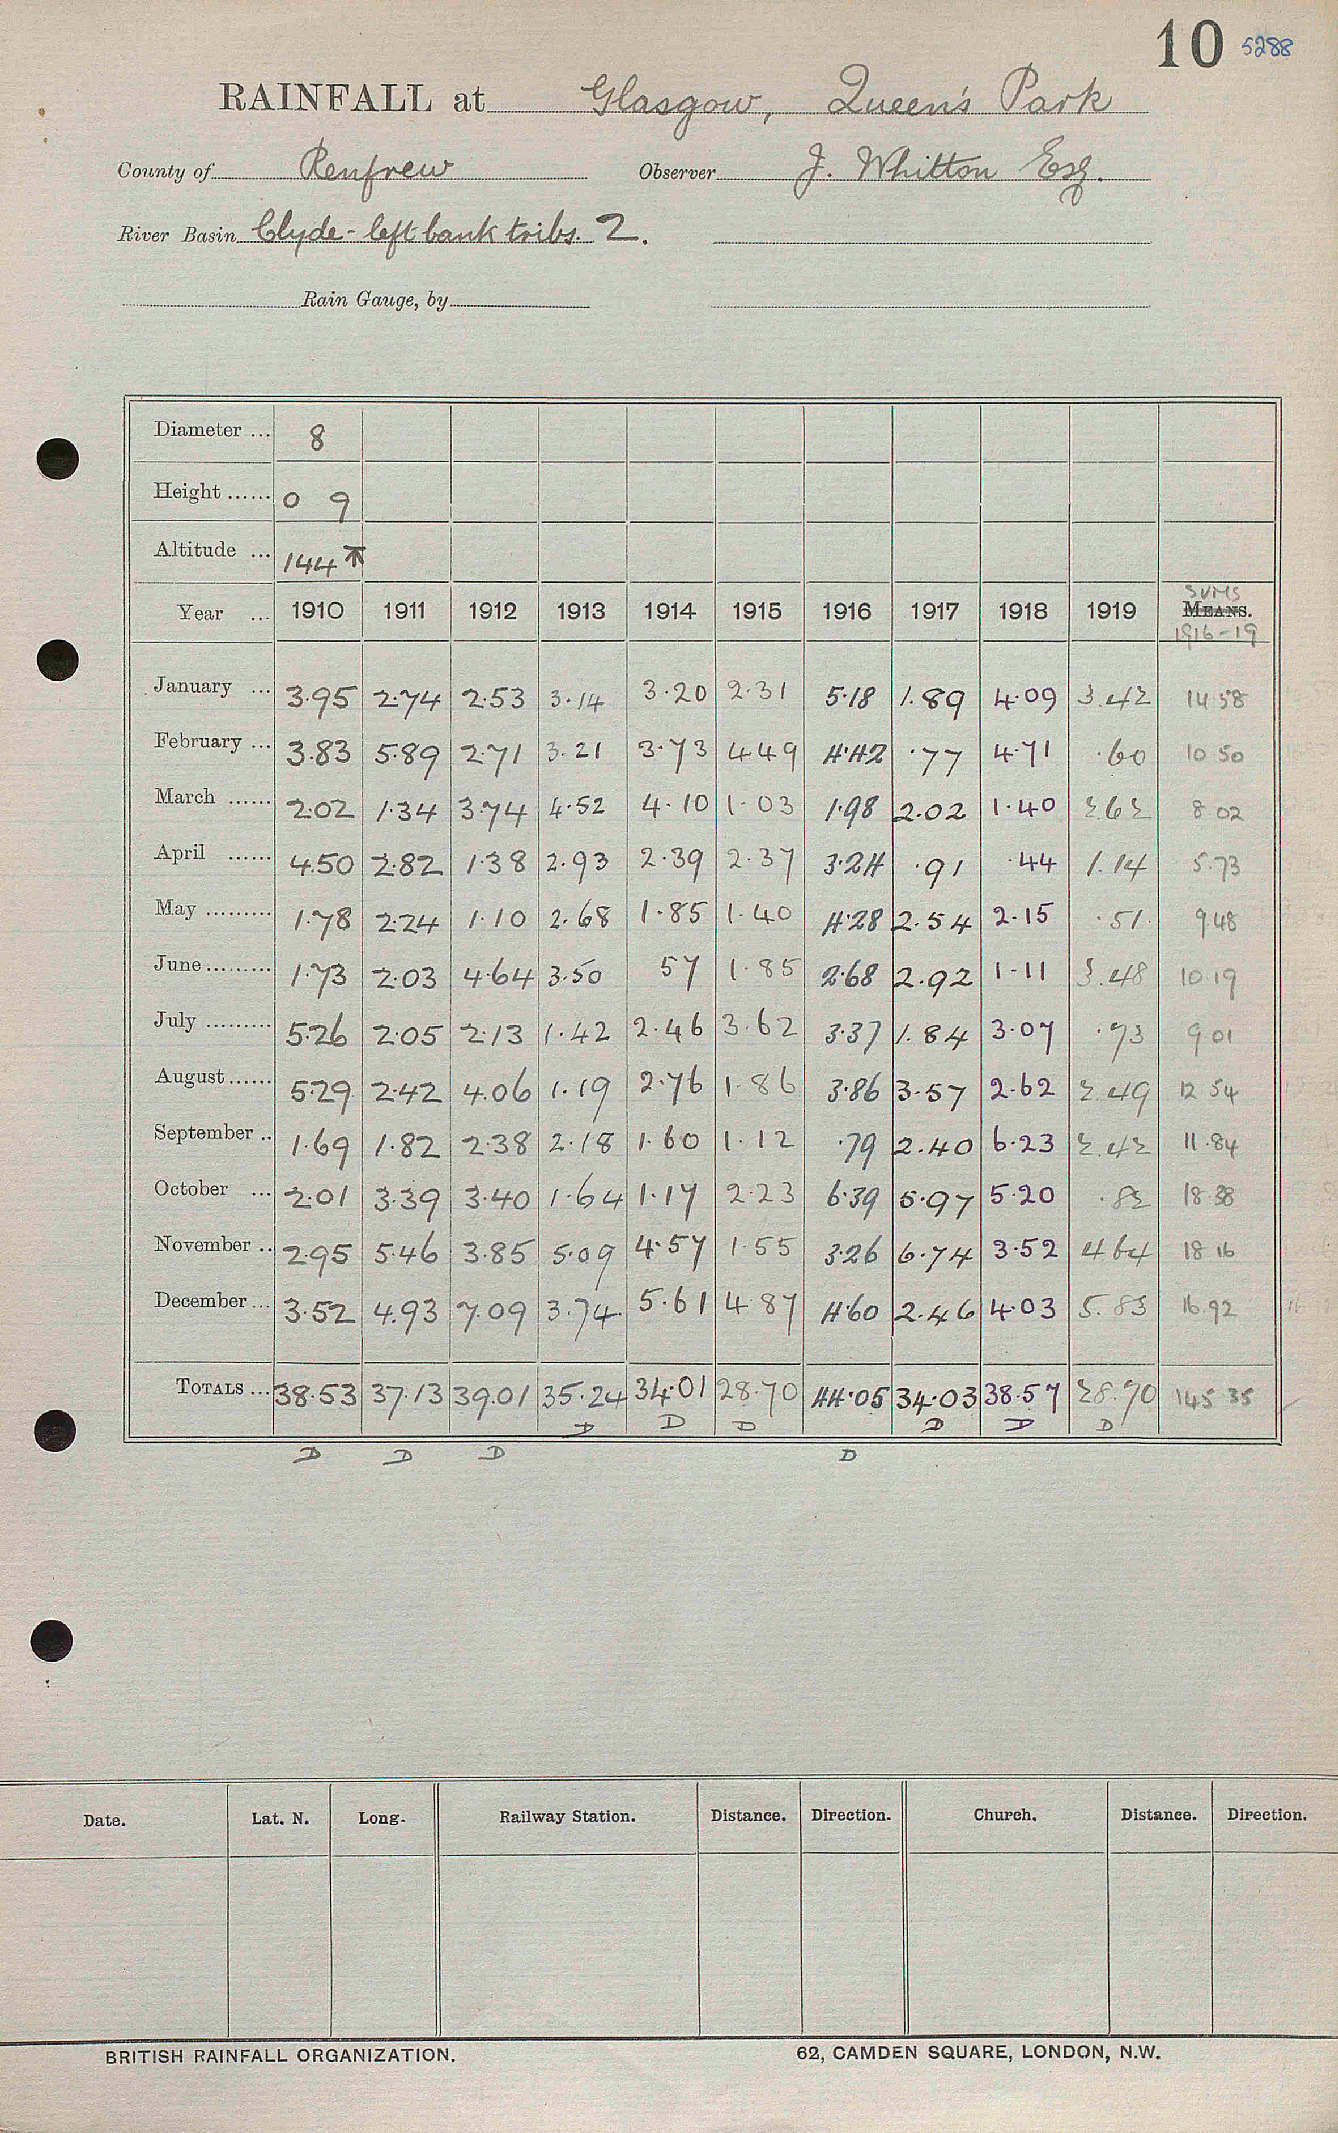 10 5288
RAINFALL at Glasgow, Queen's Park
County of Renfrew Observer J. Whitton Esq.
River Basin Clyde - left bank tribs. 2.
Rain Gauge, by
Diameter ... 8
Height ...... 0 9
Altitude ... 144 T
SUMS
Year ... 1910 1911 1912 1913 1914 1915 1916 1917 1918 1919 MEANS.
1916-19
January ... 3.95 2.74 2.53 3.14 3.20 2.31 5.18 1.89 4.09 3.42 14.58
February ... 3.83 5.89 2.71 3.21 3.73 4.49 4.42 .77 4.71 .60 10.50
March ...... 2.02 1.34 3.74 4.52 4.10 1.03 1.98 2.02 1.40 2.62 8.02
April ...... 4.50 2.82 1.38 2.93 2.39 2.37 3.24 .91 .44 1.14 5.73
May ......... 1.78 2.24 1.10 2.68 1.85 1.40 4.28 2.54 2.15 .51 9.48
June ......... 1.73 2.03 4.64 3.50 57 1.85 2.68 2.92 1.11 3.48 10.19
July ......... 5.26 2.05 2.13 1.42 2.46 3.62 3.37 1.84 3.07 .73 9.01
August ...... 5.29 2.42 4.06 1.19 2.76 1.86 3.86 3.57 2.62 2.49 12.54
September .. 1.69 1.82 2.38 2.18 1.60 1.12 .79 2.40 6.23 2.42 11.84
October ... 2.01 3.39 3.40 1.64 1.17 2.23 6.39 5.97 5.20 .82 18.38
November .. 2.95 5.46 3.85 5.09 4.57 1.55 3.26 6.74 3.52 4.64 18.16
December ... 3.52 4.93 7.09 3.74 5.61 4.87 4.60 2.46 4.03 5.83 16.92
TOTALS ... 38.53 37.13 39.01 35.24 34.01 28.70 44.05 34.03 38.57 28.70 145.35
D D D D D D
D D D D
Date. Lat. N. Long. Railway Station. Distance. Direction. Church. Distance. Direction.
BRITISH RAINFALL ORGANIZATION. 62, CAMDEN SQUARE, LONDON, N.W.